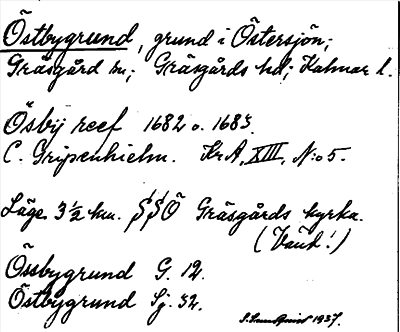 Östbygrund, grund i Östersjön;
Gräsgård sn; Gräsgårds hd; Kalmar l.
Ösby reef 1682 o. 1683.
C. Gripenhielm. Kr A, XIII, N:o 5.
Läge 3 1/2 km. SSÖ Gräsgårds kyrka.
(Väut!)
Össbygrund G. 12.
Östbygrund Sj. 32.
S. Lundquist 1937.